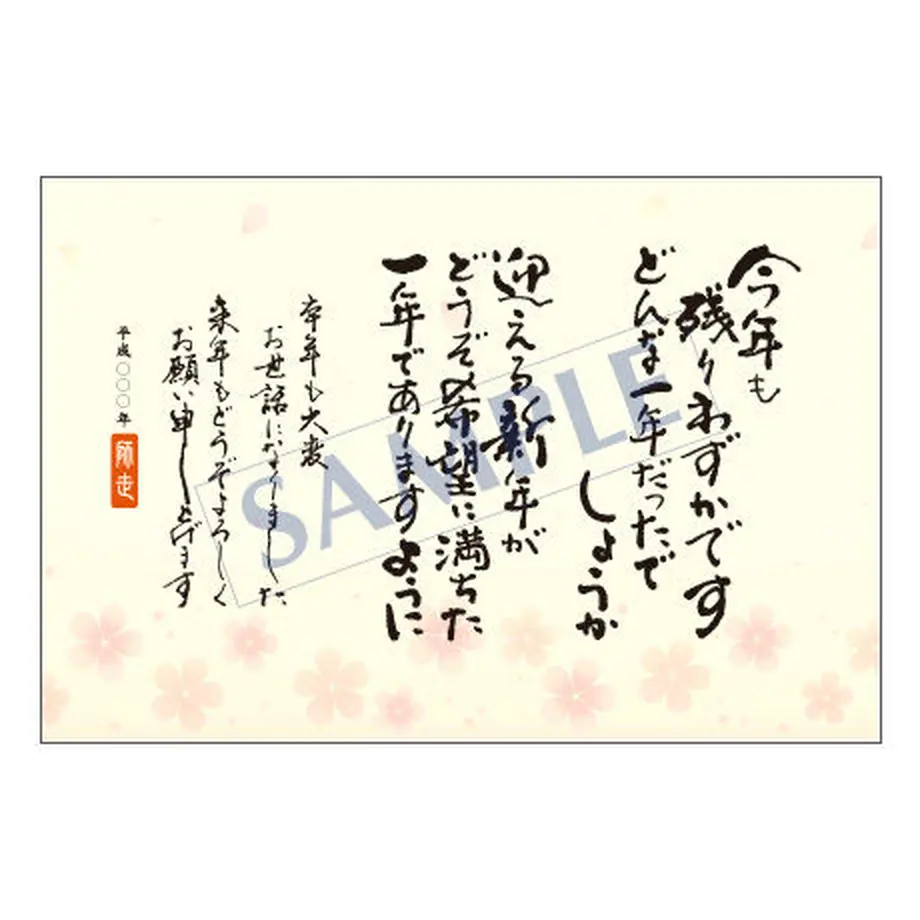 今年も
残りわずかです
どんな一年だったで
しょうか
迎える新年が
どうぞ希望に満ちた
一年でありますように
本年も大変
お世話になりました
来年もどうぞよろしく
お願い申し上げます
平成〇〇〇年
師走
SAMPLE